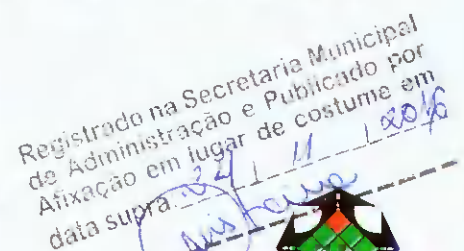 Registrado na Secretaria Municipal
de Administração e Publicado por
Afixação em lugar de costume em
data supra. 24 / 11 / 2016